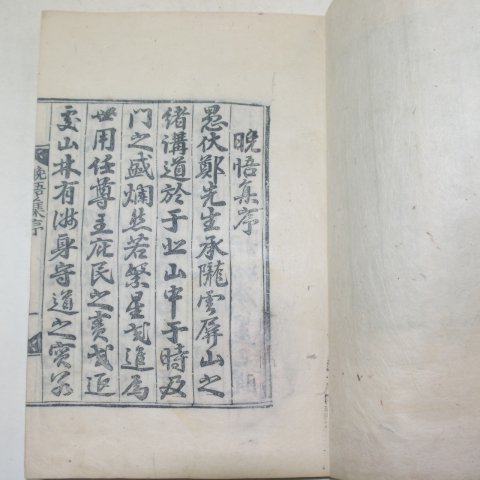 晩悟集序
愚伏鄭先生承隴雲屛山之
緖講道於于北山中于時及
門之盛爛然若繁星或進爲
世用任尊王庇民之責或退
處山林有潔身守道之實若
晩悟集序